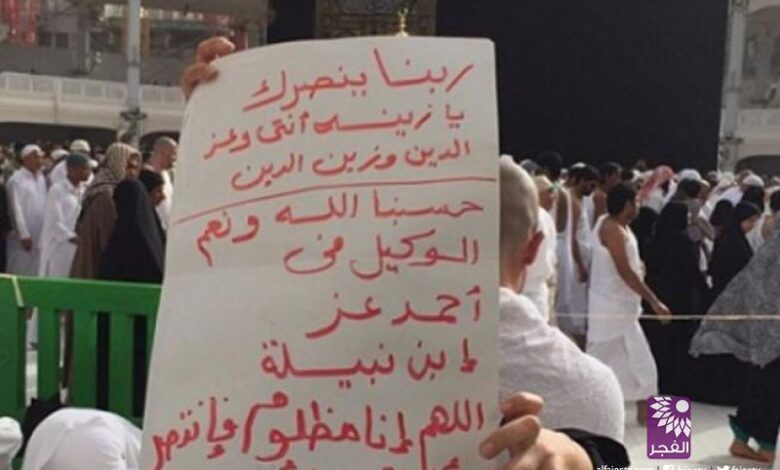 ربنا ينصرك
يا زينه انتى وعز
الدين وزين الدين
حسبنا الله ونعم
الوكيل فى
أحمد عز
إبن نبيلة
اللهم إنا مظلوم فإنتصر
الفجر